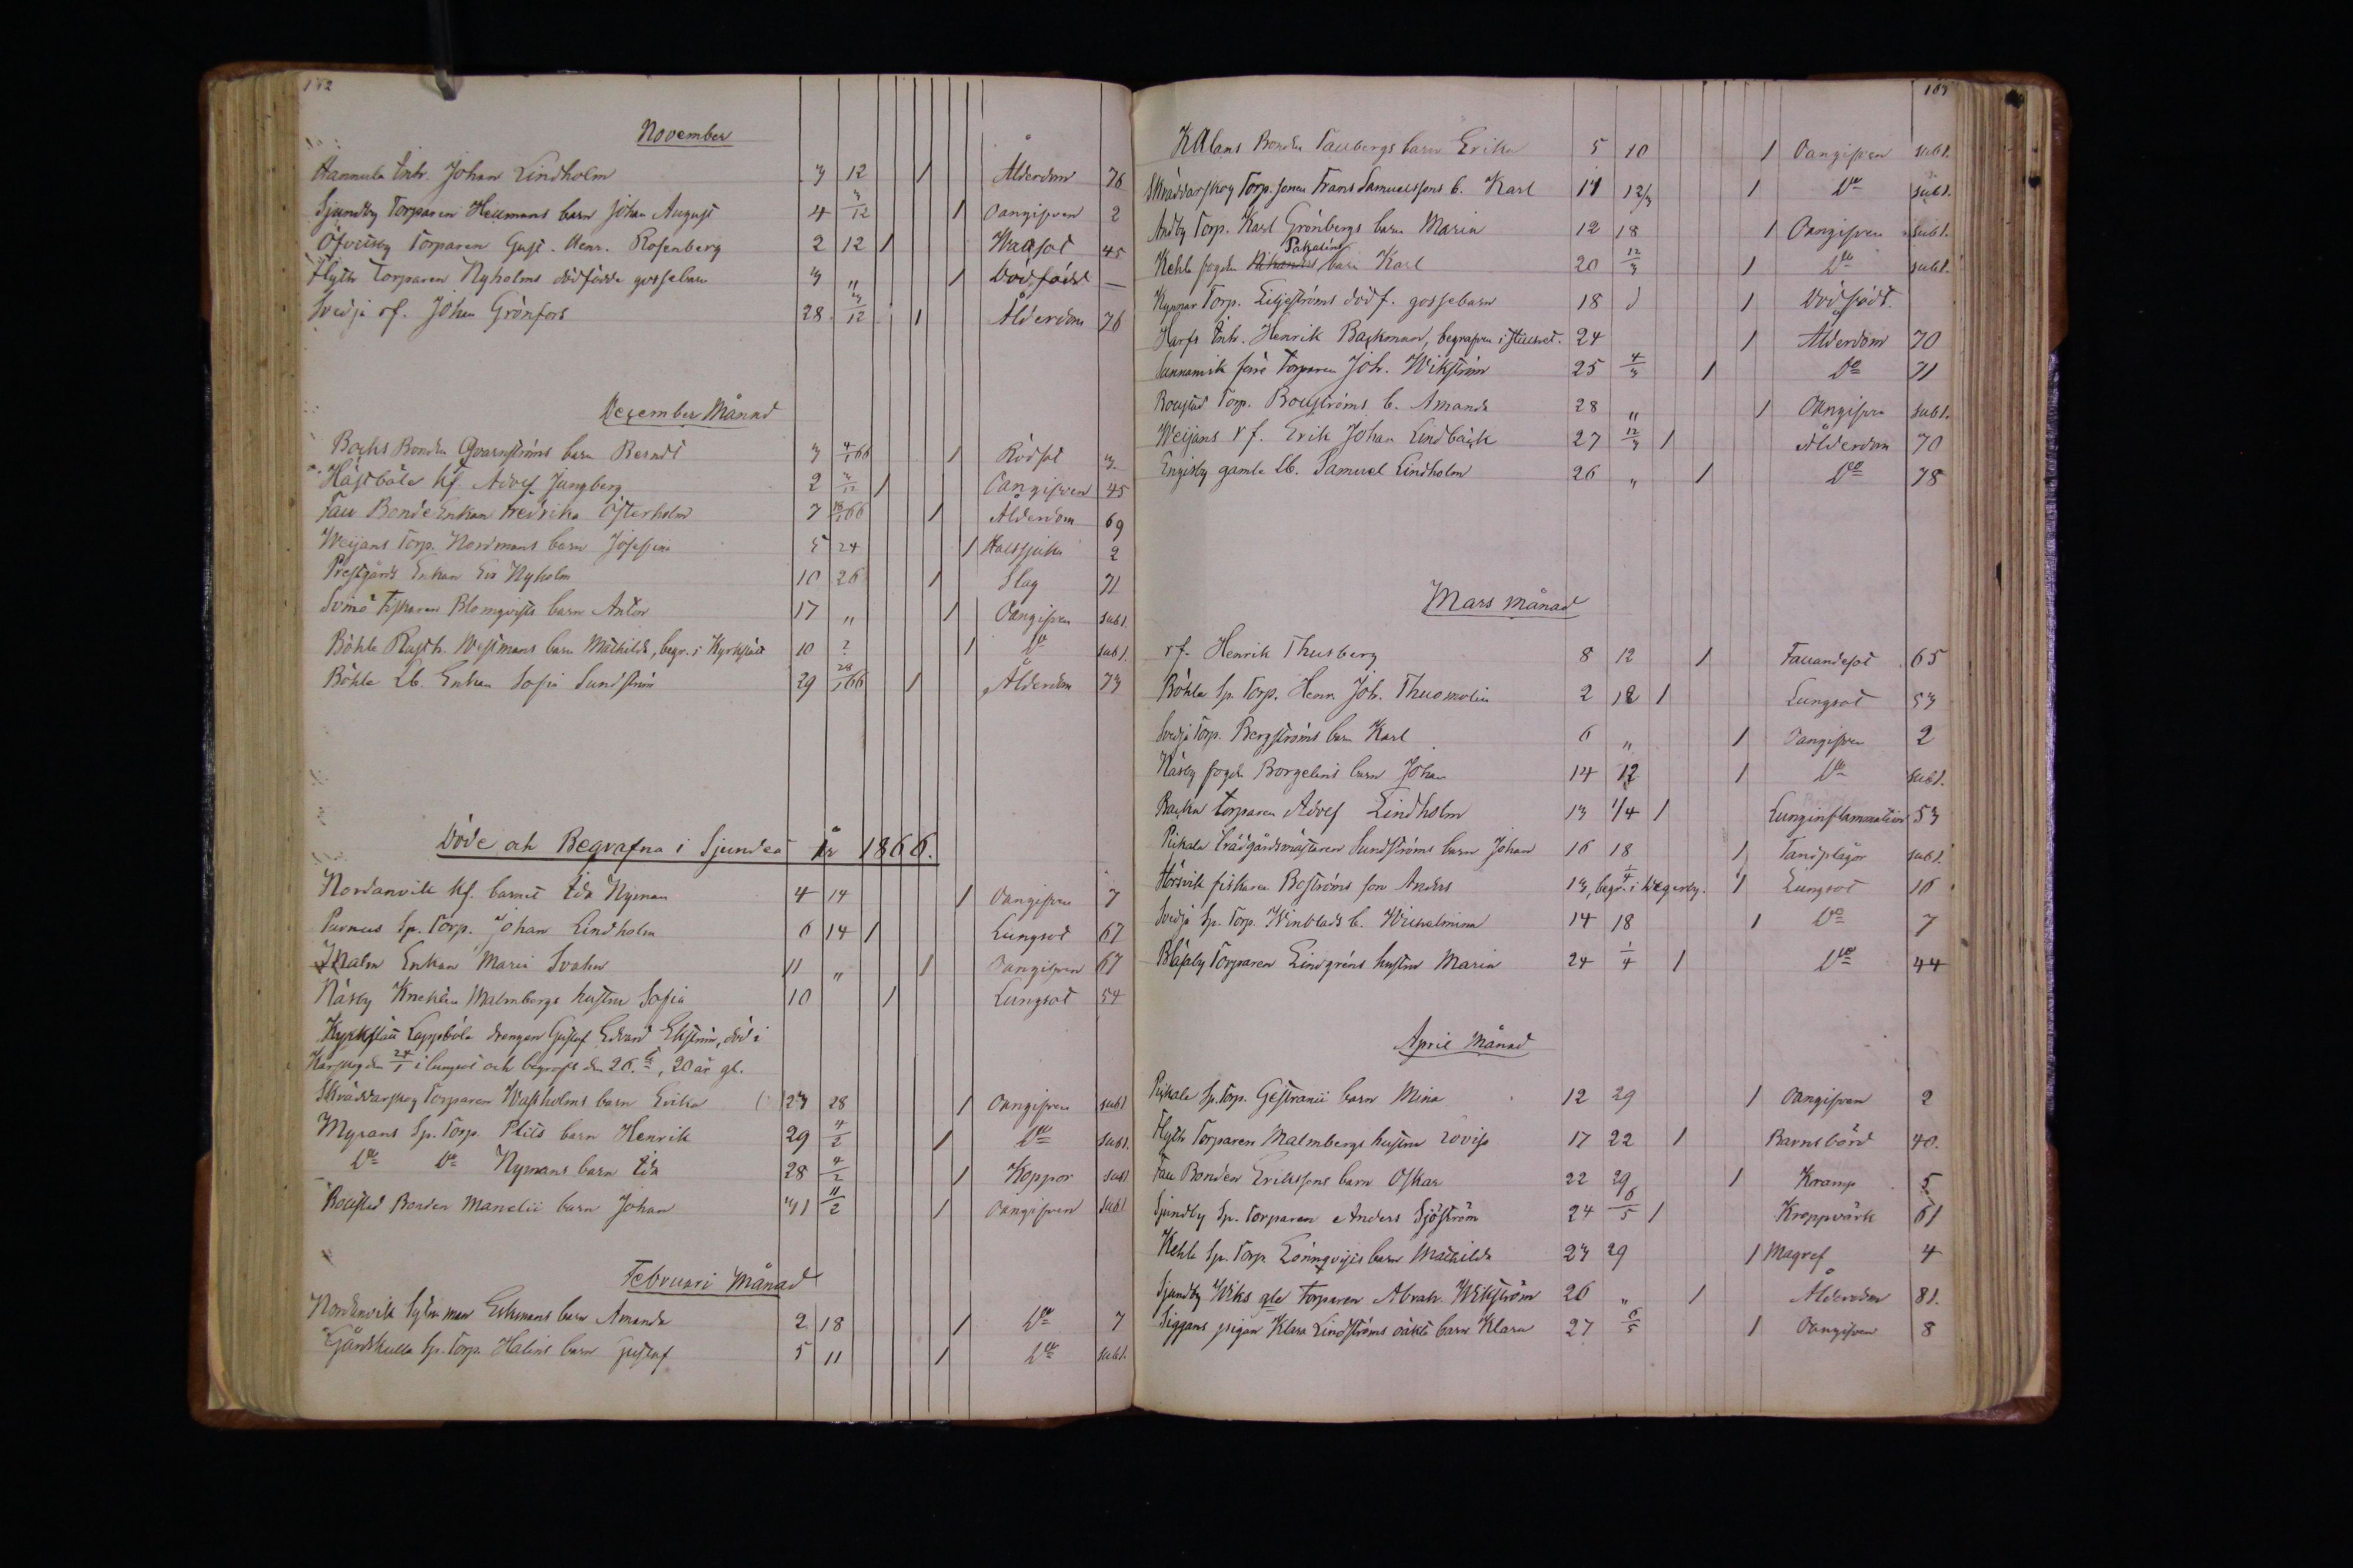 November
Hannula Enk. Johan Lindholm 3 12 1 Ålderdom 76
Sjundby Torparen Hellmans barn Johan August 4 3/12 1 Oangifven 2
Öfvitsby Torparen Gust. Henr. Rosenberg 2 12 1 Wattsot 45
Flyth Torparen Nyholms dödfödda gossebarn 3 " 1 Dödfödd —
Svidja rf. Johan Grönfors 28 3/12 1 Ålderdom 76
December Månad
Backs Bonden Qvarnströms barn Berndt 3 4/1 66 1 Rödsot 3
Hästböle hf Adolf Jungberg 2 3/12 1 Oangifven 45
Fall Bonde Enkan Fredrika Österholm 7 /1 66 1 Ålderdom 69
Weijans Torp. Nordmans barn Josefina 5 24 1 Halssjuka 2
Prestgårds Enkan Eva Nyholm 10 26 1 Slag 71
Svinö Fiskaren Blomqvists barn Anton 17 " 1 Oangifven sub 1.
Böhle Rusth. Westmans barn Mathilda, begr. i Kyrkslätt 10 ? 1 Do sub 1.
Böhle Lb. Enkan Sofia Sundström 29 28/1 66 1 Ålderdom 73
Döde och Begrafna i Sjundeå År 1866.
Nordanvik hf. barnet Ida Nyman 4 14 1 Oangifven 7
Purnus Sp. Torp. Johan Lindholm 6 14 1 Lungsot 67
Malm Enkan Maria Svahn 11 " 1 Oangifven 67
Näsby Knekten Malmbergs hustru Sofia 10 1 Lungsot 54
Kyrkslätt Lappböle drengen Gustaf Edvard Ekström, död i
Kårskog den 24/1 i lungsot och begrofs den 26. , 20 år gl.
Skräddarskog Torparen Washolms barn Erika 23 28 1 Oangifven sub 1
Myrans Sp. Torp. Plits barn Henrik 29 4/2 1 Do sub 1.
Do Do Nymans barn Ida 28 4/2 1 Koppor sub 1
Bollstad Bonden Manelii barn Johan 31 11/2 1 Oangifven sub 1
Februari Månad
Nordanvik Sytn. man Eckmans barn Amanda 2 18 1 Do 7
Gårdskulla Sp. Torp. Halins barn Gustaf 5 11 1 Do sub 1.
163
Kalans Bonden Taubergs barn Erika 5 10 1 Oangifven sub 1.
Skräddarskog Torp. sonen Frans Samuelssons b. Karl 11 12/3 1 Do sub 1.
Andby Torp. Karl Grönbergs barn Maria 12 18 1 Oangifven sub 1.
Kehla fogden barn Karl 20 12/3 1 Do sub 1.
Torp. Liljeströms dödf. gossebarn 18 1 Dödfödt.
Harfs Enk. Henrik Backman, begrafven i stillhet. 24 1 Ålderdom 70
Sunnanvik förre Torparen Joh. Wikström 25 4/3 1 Do 71
Bollstad Torp. Bollströms b. Amanda 28 " 1 Oangifven sub 1.
Weijans rf. Erik Johan Lindbäck 27 12/3 1 Ålderdom 70
Engisby gamla Lb. Samuel Lindholm 26 " 1 Do 78
Mars månad
rf. Henrik Thusberg 8 12 1 Fallandesot 65
Böhle Sp. Torp. Henr. Joh. Thusmolin 2 12 1 Lungsot 53
Svidja Torp. Bergströms barn Karl 6 " 1 Oangifven 2
Näsby fogden Borgelins barn Johan 14 12 1 Do sub 1.
Backa torparen Adolf Lindholm 13 1/4 1 Lunginflammation 53
Pikala trädgårdsmästaren Sundströms barn Johan 16 18 1 Tandplågor sub 1.
Horsvik fiskaren Boströms son Anders 13, begr. 1/4 i Degerby. 1 Lungsot 16
Svidja Sp. Torp. Winblads b. Wilhelmina 14 18 1 Do 7
Blåsaby Torparen Lindgréns hustru Maria 24 1/4 1 Do 44
April Månad
Pikala Sp. Torp. Gestranii barn Mina 12 29 1 Oangifven 2
Flyth Torparen Malmbergs hustru Lovisa 17 22 1 Barnsbörd 40.
Fall Bonden Erikssons barn Oskar 22 29 1 Kramp 5
Sjundby Sp. Torparen Anders Sjöström 24 6/5 1 Kroppvärk 61
Kehla Sp. Torp. Lönnqvists barn Mathilda 23 29 1 Magref 4
Sjundby Wiks gle Torparen Abrah. Wikström 26 " 1 Ålderdom 81.
Siggans pigan Klara Lindströms oäkta barn Klara 27 6/5 1 Oangifven 8